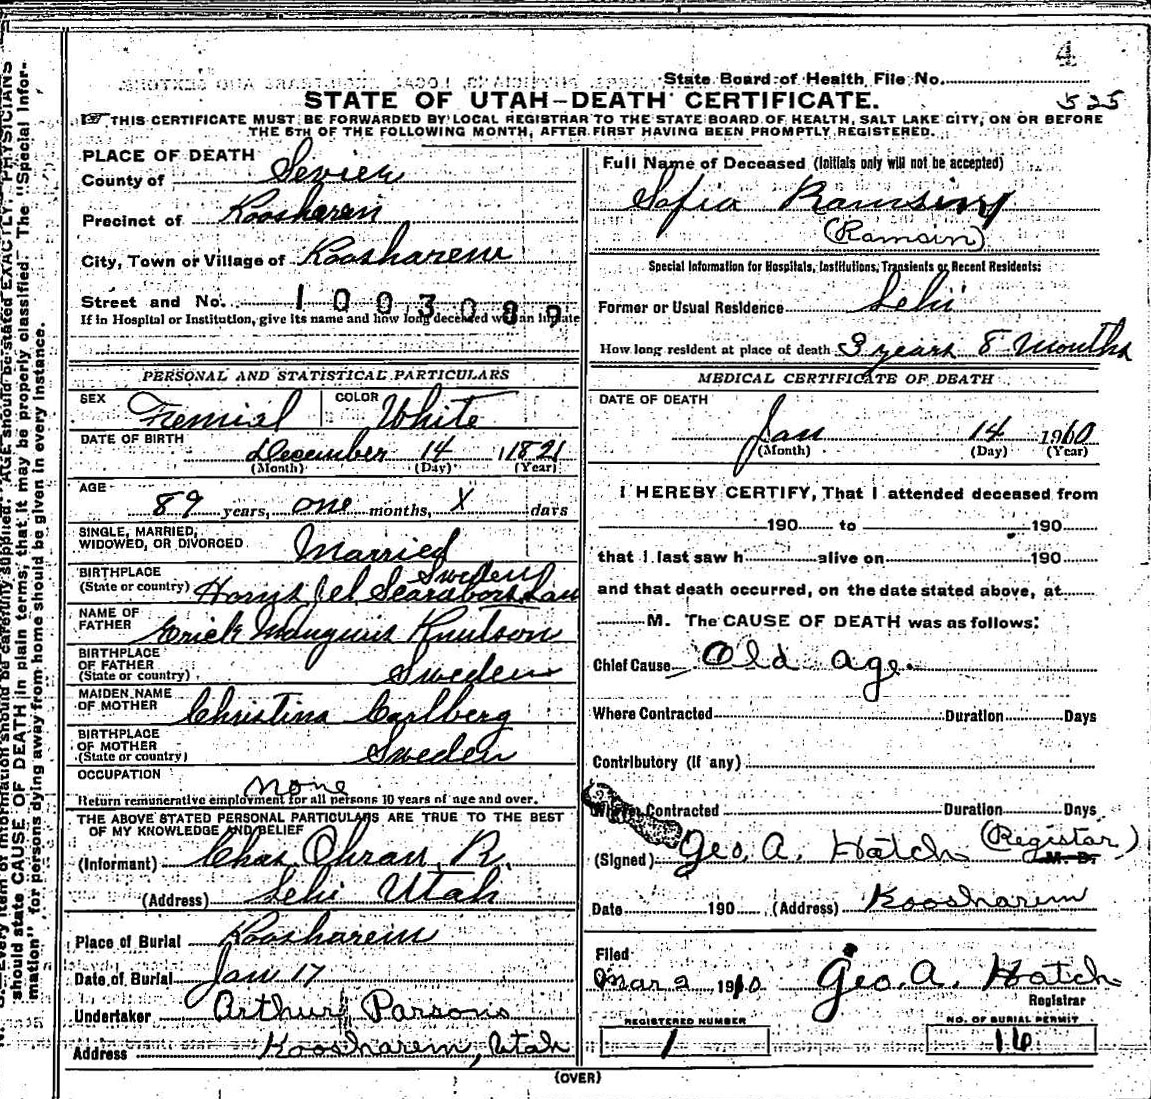 4
State Board of Health File No.
525
STATE OF UTAH—DEATH CERTIFICATE.
THIS CERTIFICATE MUST BE FORWARDED BY LOCAL REGISTRAR TO THE STATE BOARD OF HEALTH, SALT LAKE CITY, ON OR BEFORE
THE 5TH OF THE FOLLOWING MONTH, AFTER FIRST HAVING BEEN PROMPTLY REGISTERED.
PLACE OF DEATH
County of Sevier
Precinct of Koosharem
City, Town or Village of Koosharem
Street and No.
1003089
If in Hospital or Institution, give its name and how long deceased was an inmate
PERSONAL AND STATISTICAL PARTICULARS
SEX Femiel COLOR White
DATE OF BIRTH December 14 1821
(Month) (Day) (Year)
AGE 89 years, one months, X days
SINGLE, MARRIED,
WIDOWED, OR DIVORCED Married
BIRTHPLACE Sweden
(State or country)
NAME OF
FATHER Erick Knutson
BIRTHPLACE
OF FATHER
(State or country) Sweden
MAIDEN NAME
OF MOTHER Christina Carlberg
BIRTHPLACE
OF MOTHER
(State or country) Sweden
OCCUPATION none
Return remunerative employment for all persons 10 years of age and over.
THE ABOVE STATED PERSONAL PARTICULARS ARE TRUE TO THE BEST
OF MY KNOWLEDGE AND BELIEF
(Informant) Chas Ohran R.
(Address) Lehi Utah
Place of Burial Koosharem
Date of Burial Jan 17
Undertaker Arthur Parsons
Address Koosharem, Utah
Full Name of Deceased (Initials only will not be accepted)
Sofia Ramsing
(Ramsin)
Special Information for Hospitals, Institutions, Transients or Recent Residents:
Former or Usual Residence Lehi
How long resident at place of death 3 years 8 months
MEDICAL CERTIFICATE OF DEATH
DATE OF DEATH
Jan 14 1910
(Month) (Day) (Year)
I HEREBY CERTIFY, That I attended deceased from
190 to 190
that I last saw h alive on 190
and that death occurred, on the date stated above, at
M. The CAUSE OF DEATH was as follows:
Chief Cause Old age
Where Contracted Duration Days
Contributory (if any)
Where Contracted Duration Days
(Signed) Geo. A. Hatch (Registar) M. D.
Date 190 (Address) Koosharem
Filed
Mar 2 1910 Geo. A. Hatch
Registrar
REGISTERED NUMBER
1
NO. OF BURIAL PERMIT
16
(OVER)
Every item of information should be carefully supplied. AGE should be stated EXACTLY. PHYSICIANS
should state CAUSE OF DEATH in plain terms, that it may be properly classified. The "Special Infor-
mation" for persons dying away from home should be given in every instance.